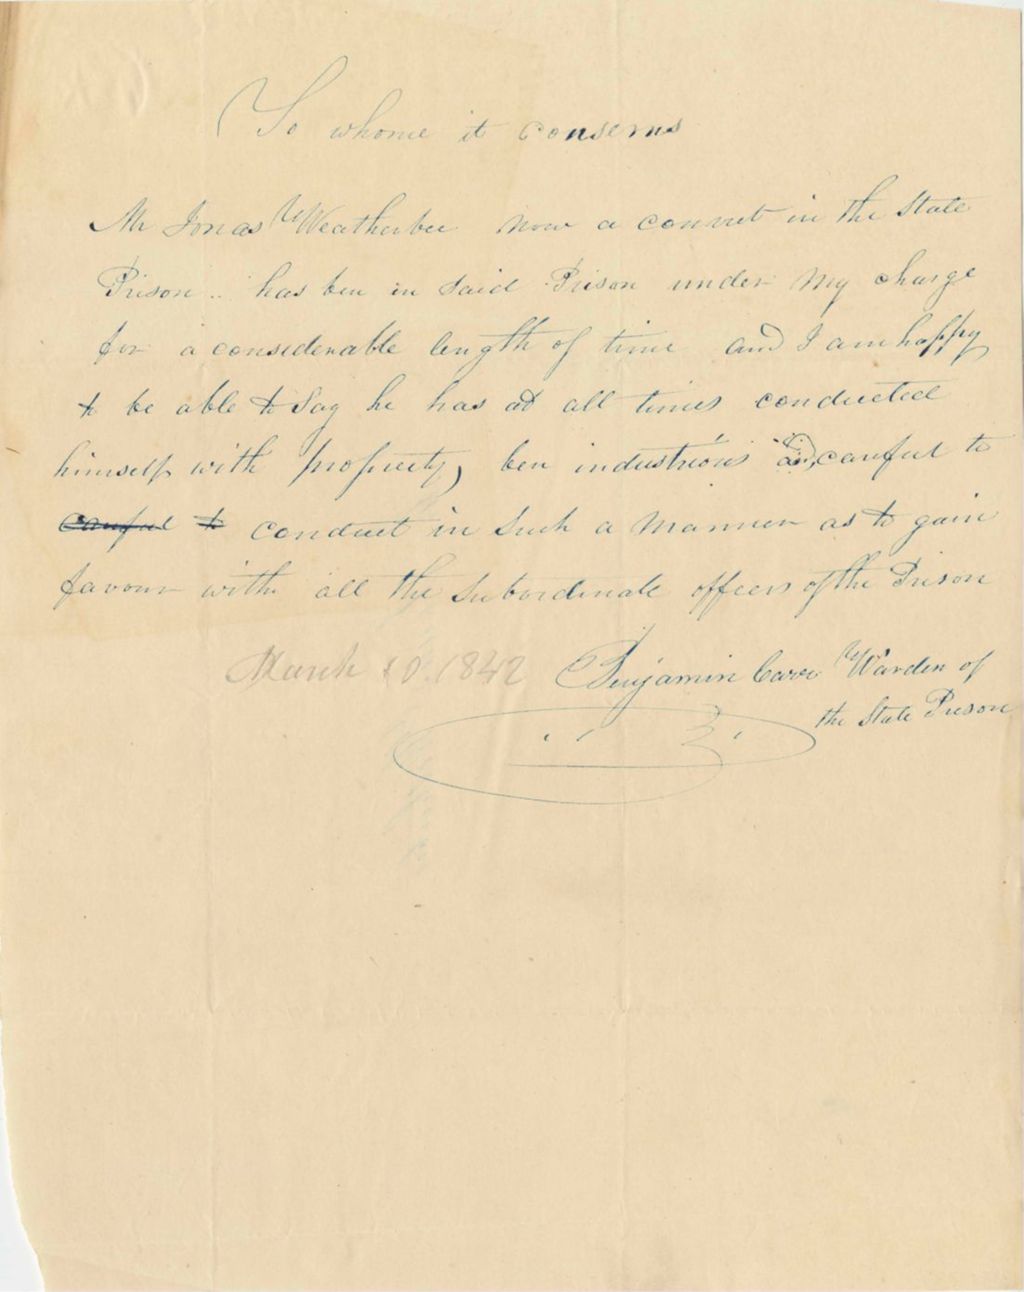 To whome it conserns
Mr Jonas Weatherbee now a convict in the State
Prison .. has ben in said Prison under my charge
for a considerable length of time and I am happy
to be able to say he has at all times conducted
himself with propriety, ben industrious and careful to
careful to conduct in such a manner as to gain
favour withe all the subordinate officers of the Prison
March 10. 1842 Benjamin Carr Warden of
the State Prison